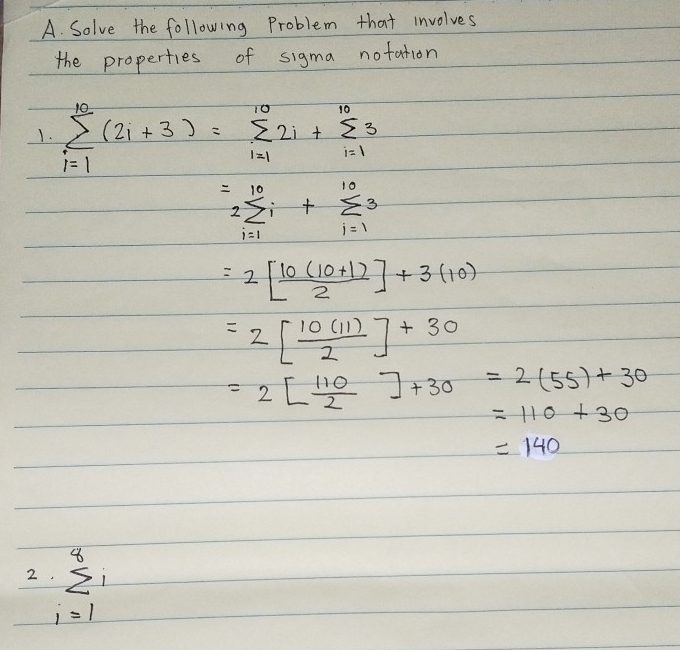 A. Solve the following Problem that involves
the properties of sigma notation
10 10 10
1. Σ (2i + 3) = Σ 2i + Σ 3
i=1 i=1 i=1
= 10 10
2 Σ i + Σ 3
i=1 i=1
= 2 [10 (10+1) / 2] + 3 (10)
= 2 [10 (11) / 2] + 30
= 2 [110 / 2] + 30 = 2 (55) + 30
= 110 + 30
= 140
8
2. Σ i
i = 1